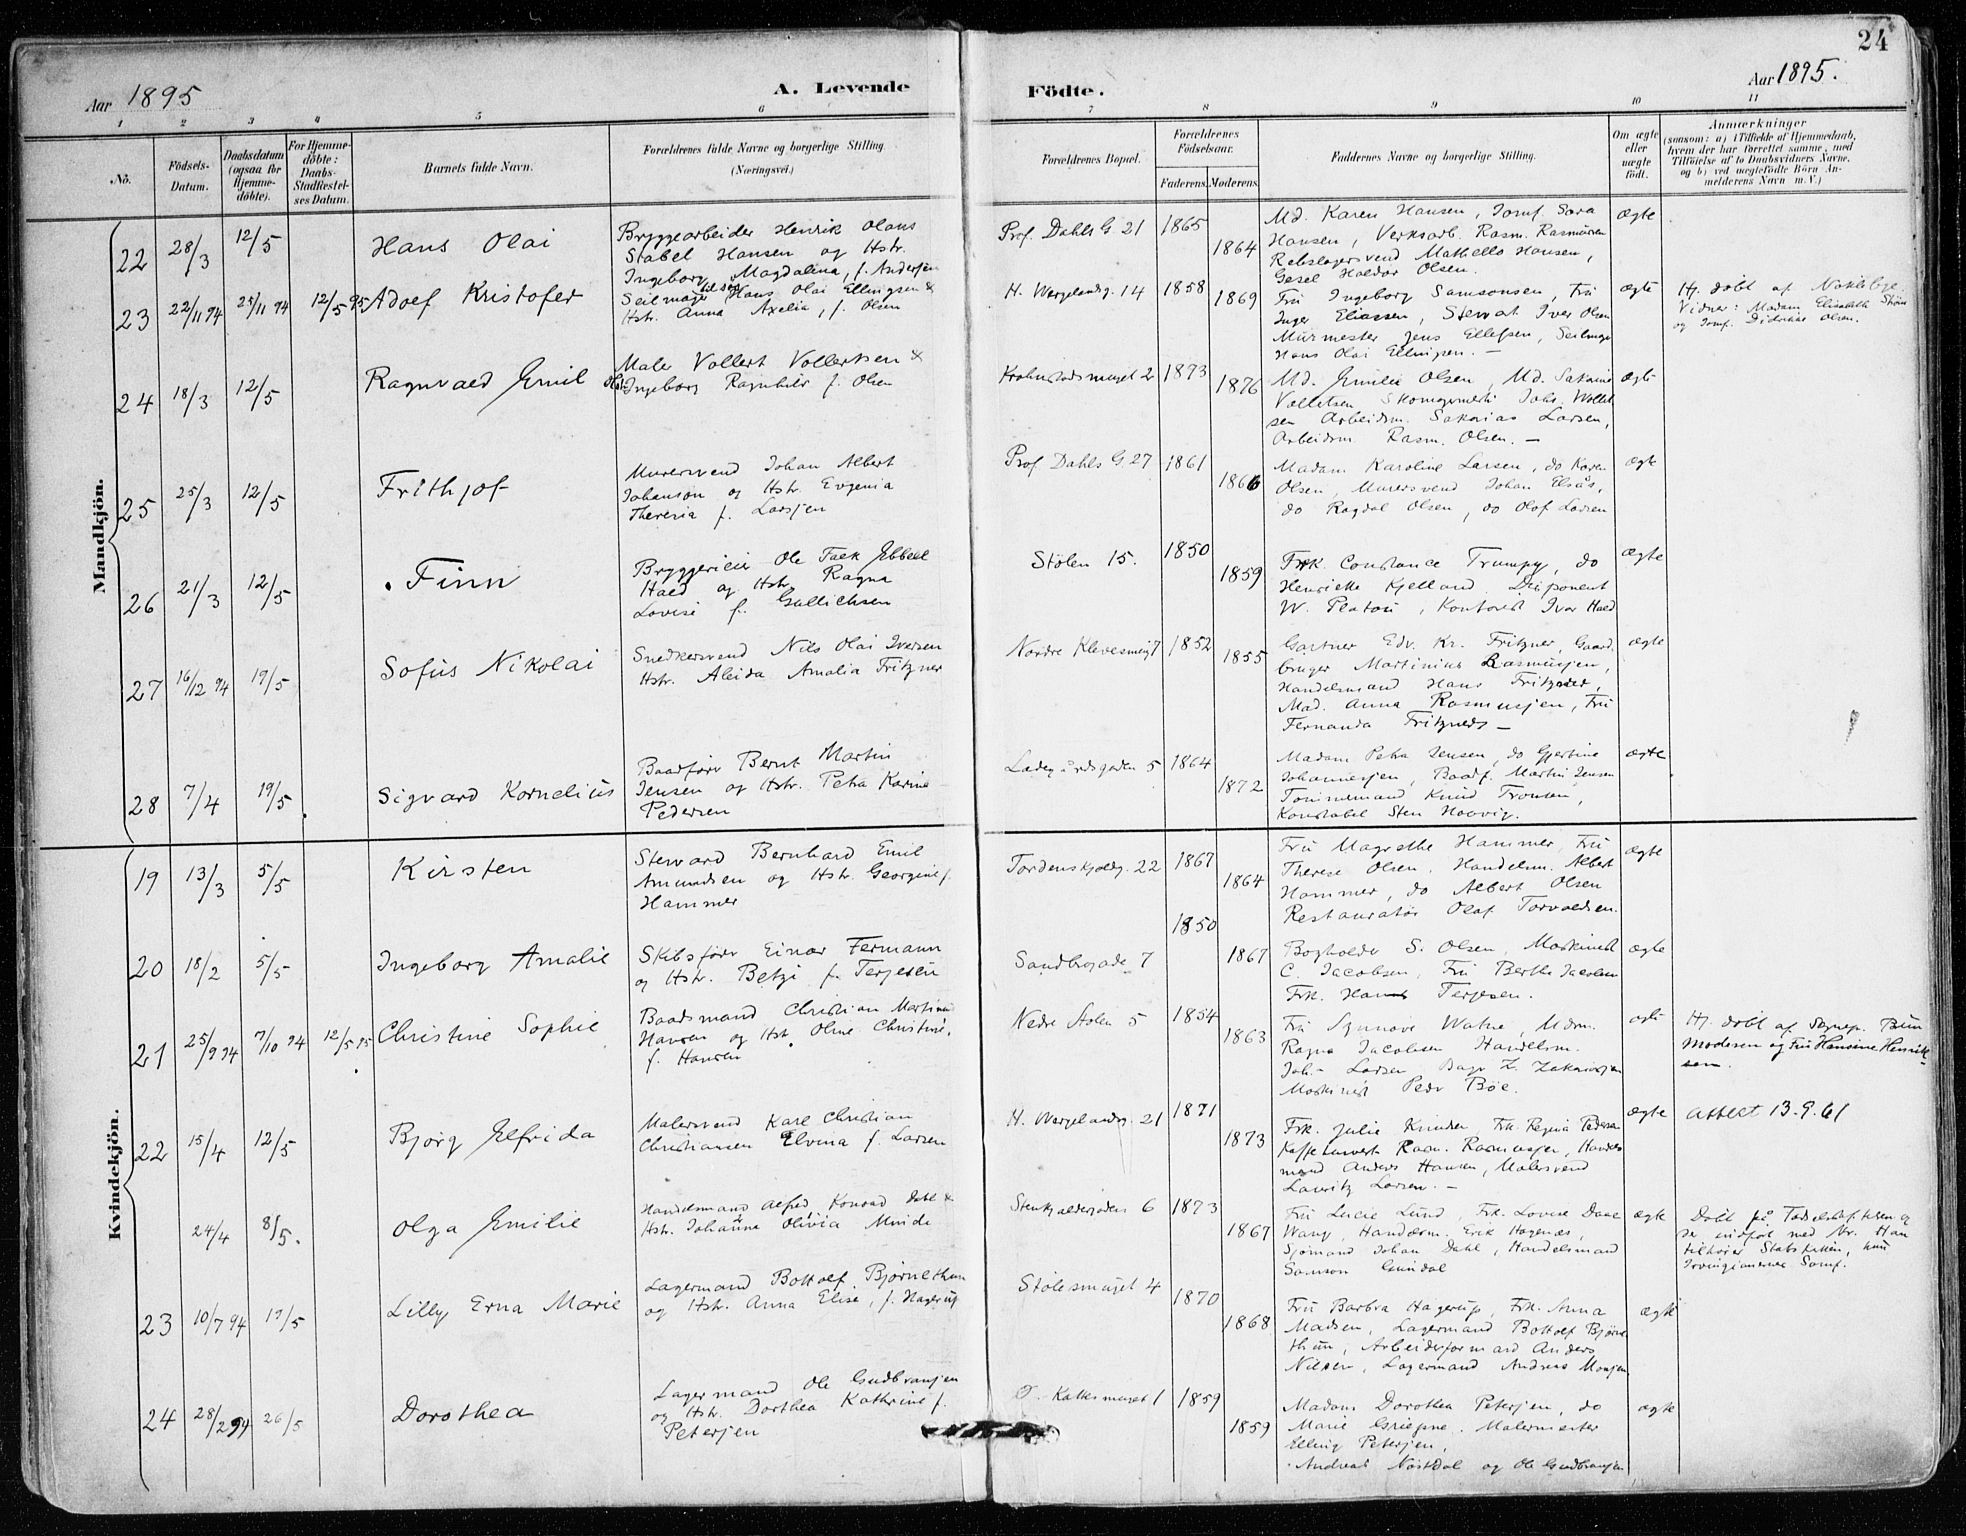 24
Aar 1895
A. Levende
Födte.
Aar 1895.
1 2 3 4 5 6 7 8 9 10 11
No.
Födsels-Datum.
Daabsdatum (ogsaa for Hjemmedöbte).
For Hjemmedöbte: Daabs-Stadfæstelses Datum.
Barnets fulde Navn.
Forældrenes fulde Navne og borgerlige Stilling.
(Næringsvei.)
Forældrenes Bopæl.
Forældrenes Födselsaar.
Faderens. Moderens.
Faddernes Navne og borgerlige Stilling.
Om ægte eller uægte födt.
Anmærkninger
(saasom: a) i Tilfælde af Hjemmedaab, hvem der har forrettet samme, med Tilföielse af to Daabsvidners Navne, og b) ved uægtefödte Börn Anmelderens Navn m. V.)
Mandkjön.
22 28/3 12/5 Hans Olai
Bryggearbeider Henrik Olaus
Stabel Hansen og Hstr.
Ingeborg Magdalina, f. Andersen
Prof. Dahls G 21 1865 1864
Md. Karen Hansen, Jomf. Sara
Hansen, Verksarb. Rasm. Rasmussen
Rebslagersvend Hansen,
Olsen.
ægte
23 22/11 94 25/11 94 12/5 95 Adolf Kristofer
Hans Olai Ellingsen &
Hstr. Anna Axelia, f. Olsen
H. Wergelandsg. 14 1858 1869
Fru Ingeborg Samsonsen, Fru
Inger Eliassen, Iver Olsen
Murmester Jens Ellefsen,
Hans Olai Ellingsen. —
ægte
Hj. døbt af
Vidner: Madam Elisabeth
og Jomf. Didrikke Olsen.
24 18/3 12/5 Ragnvald Emil
Maler Vollert Vollertsen &
Hstr. Ingeborg Ragnhild f. Olsen
Krohnstadsmuget 2 1873 1876
Md. Emilie Olsen, Md.
Arbeidsm. Sakarias Larsen,
Arbeidsm. Rasm. Olsen. —
ægte
25 25/3 12/5 Frithjof
Murersvend Johan Albert
Johanson og Hstr. Evgenia
Theresia f. Larsjen
Prof. Dahls G. 27 1861 1866
Madam Karoline Larsen, do Karen
Olsen, Murersvend Johan
do Olsen, do Olof Larsen
ægte
26 21/3 12/5 Finn
Bryggerieier Ole Falk Ebbell
Hald og Hstr. Ragna
Lovise f. Gullichsen
Stølen 15. 1850 1859
Frk. Constance Trumpy, do
Henriette Kjelland, Disponent
W. Platou, Kontorist Iver Hald
ægte
27 16/12 94 19/5 Sofus Nikolai
Snedkersvend Nils Olai Iversen
Hstr. Aleida Amalia Fritzner
Nordre Klevesmug 7 1852 1855
Gartner Edv. Kr. Fritzner, Gaard-
bruger Martinius Rasmusjen,
Handelsmand Hans Fritzner,
Mad. Anna Rasmusjen, Fru
Fernanda Fritzner. —
ægte
28 7/4 19/5 Sigvard Kornelius
Baadfører Bernt Martin
Jensen og Hstr. Petra Karina
Pedersen
Ladegårdsgaden 5 1864 1872
Madam Petra Jensen, do Gjertine
Johannesjen, Baadf. Martin Jensen
Tømmermand Knud
Konstabel Sten Hovvig.
ægte
Kvindekjön.
19 13/3 5/5 Kirsten
Steward Bernhard Emil
Amundsen og Hstr. Georgine f.
Hammer
Tordenskjoldsg. 22 1867 1864
Fru Magrethe Hammer, Fru
Therese Olsen, Handelsm. Albert
Hammer, do Albert Olsen
Restauratør Olaf Torvaldsen.
ægte
20 18/2 5/5 Ingeborg Amalie
Skibsfører Einar Fermann
og Hstr. Betzi f. Terjesen
Sandbrogade 7 1850 1867
Bogholder S. Olsen, Maskinist
C. Jacobsen, Fru Berthe Jacobsen
Frk. Terjesen.
ægte
21 25/9 94 7/10 94 12/5 95 Christine Sophie
Baadsmand Christian
Hansen og Hstr. Oline Christine,
f. Hansen
Nedre Stølen 5 1854 1863
Fru Synnøve Watne, Mdm.
Ragna Jacobsen Handelsm.
Joh. Larsen
Maskinist Peder Bøe.
ægte
Hj. døbt af
Moderen og Fru Hansine Henrik-
sen.
22 15/4 12/5 Bjørg Elfrida
Malersvend Karl Christian
Christiansen Elvina f. Larsen
H. Wergelandsg. 21 1871 1873
Frk. Julie Knudsen, Frk. Regina Pedersen
Rasm. Rasmusjen, Handels-
mand Anders Hansen, Malersvend
Lauritz Larsen. —
ægte
Attest 13.9.61
24/4 8/5. Olga Emilie
Handelsmand Alfred Konrad Dahl &
Hstr. Johanna Olivia Minde
Stenkjældergaden 6 1873 1867
Fru Lucie Lund, Frk. Lovise Dahl
Wang, Handelsm. Erik Hagenæs,
Sjømand Johan Dahl, Handelsmand
Samson Gundal
ægte
Døbt på Fødselsstiftelsen og
der indført med Nr. Han
tilhører Statskirken, hun
Irvingianernes Samf.
23 10/7 94 19/5 Lilly Erna Marie
Lagermand Bottolf Bjørnethun
og Hstr. Anna Elise, f. Hagerup
Stølesmuget 4 1870 1868
Fru Barbra Hagerup, Frk. Anna
Madsen, Lagermand Bottolf Bjørne-
thun, Arbeidsformand Anders
Nilsen, Lagermand Andreas Monsen
ægte
24 28/2 94 26/5 Dorothea
Lagermand Ole Gudbransjen
og Hstr. Dorthea Kathrine f.
Petersjen
Ø. 1 1859 1859
Madam Dorothea Petersjen, do
Marie Malermester
Elling Petersjen,
Andreas Nøstdal og Ole Gudbransjen
ægte